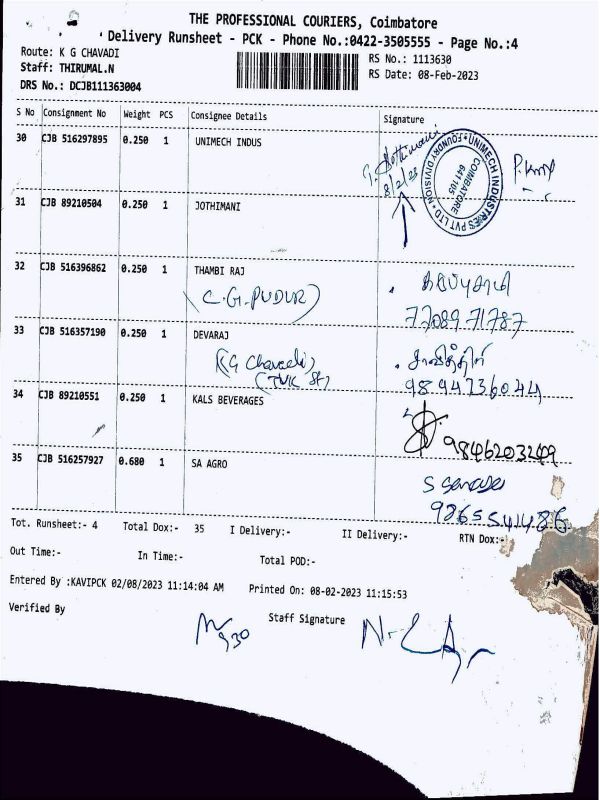 THE PROFESSIONAL COURIERS, Coimbatore
Delivery Runsheet - PCK - Phone No.:0422-3505555 - Page No.:4
Route: K G CHAVADI
RS No.: 1113630
Staff: THIRUMAL.N
RS Date: 08-Feb-2023
DRS No.: DCJB111363004
S No Consignment No Weight PCS Consignee Details Signature
30 CJB 516297895 0.250 1 UNIMECH INDUS
G. Jothimani
8/2/23
UNIMECH INDUSTRIES PVT LTD
FOUNDRY DIVISION
COIMBATORE
641 105
31 CJB 89210504 0.250 1 JOTHIMANI
32 CJB 516396862 0.250 1 THAMBI RAJ
(C.G.PUDUR)
77089 71787
33 CJB 516357190 0.250 1 DEVARAJ
(KG Chavadi)
(TMK St)
சாவித்திரி
98 94736044
34 CJB 89210551 0.250 1 KALS BEVERAGES
9846203249
35 CJB 516257927 0.680 1 SA AGRO
9865541486
Tot. Runsheet:- 4 Total Dox:- 35 I Delivery:- II Delivery:- RTN Dox:-
Out Time:- In Time:- Total POD:-
Entered By :KAVIPCK 02/08/2023 11:14:04 AM Printed On: 08-02-2023 11:15:53
Verified By Staff Signature